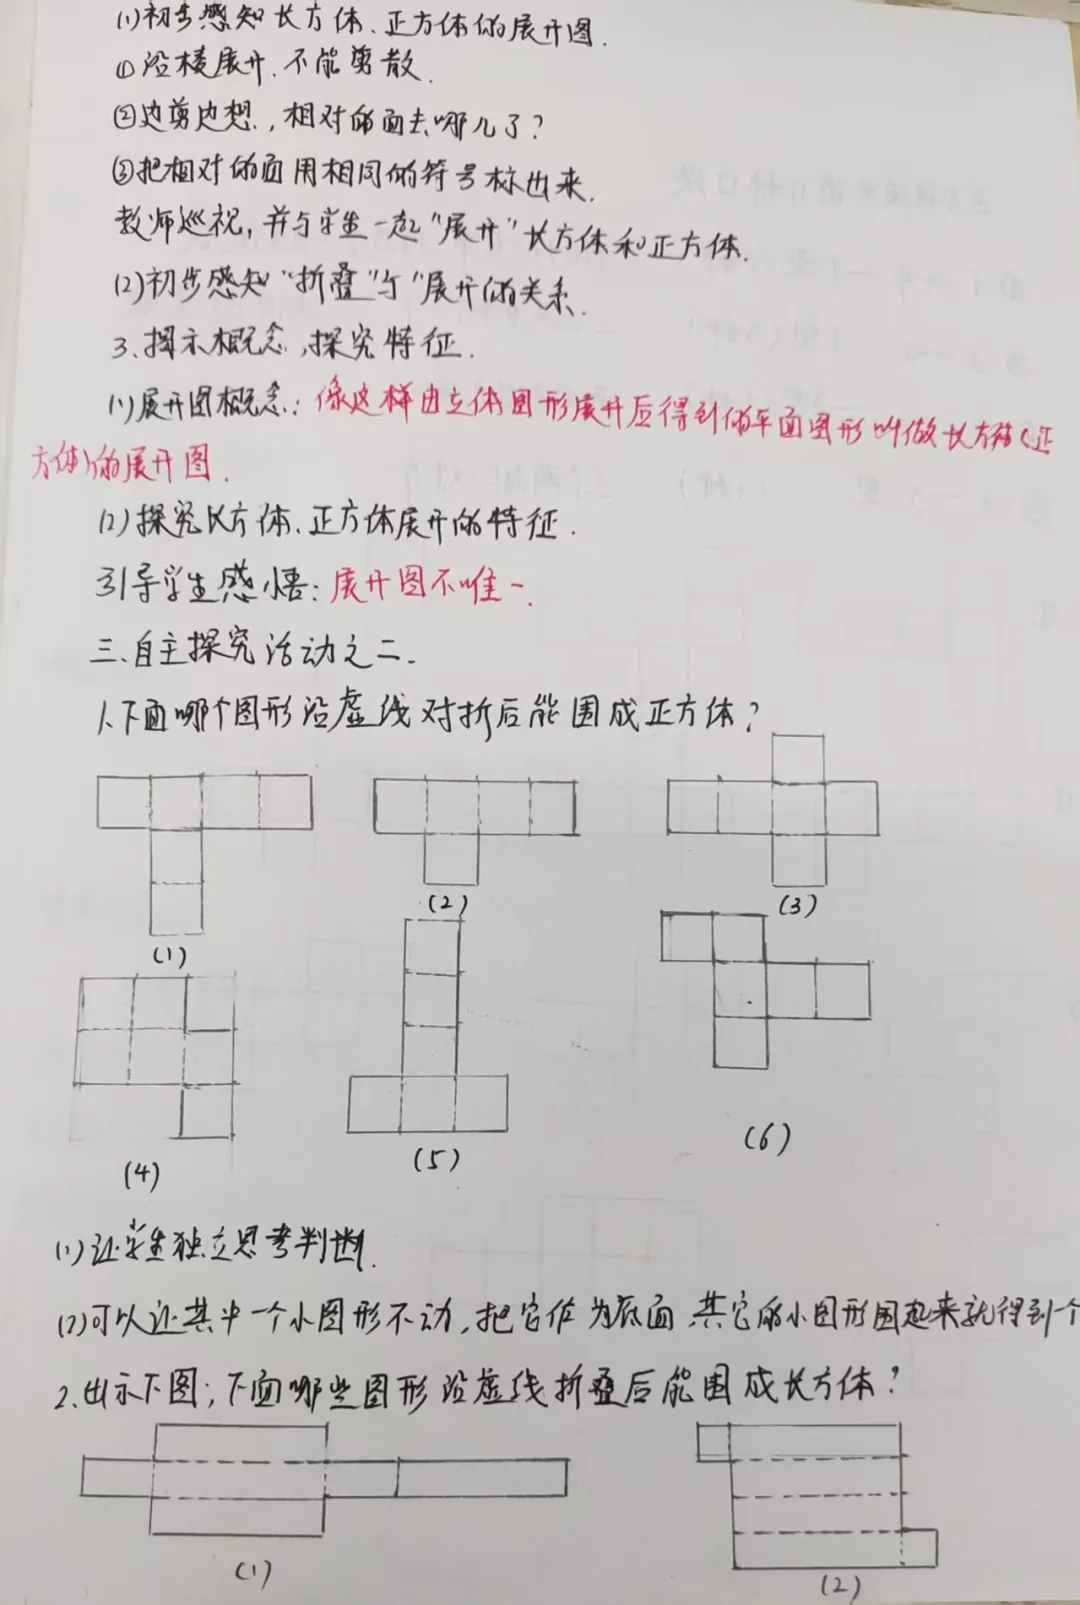 (1)初步感知长方体、正方体的展开图.
①沿棱展开.不能剪散.
②边剪边想,相对的面去哪儿了?
③把相对的面用相同的符号标出来.
教师巡视,并与学生一起"展开"长方体和正方体.
(2)初步感知"折叠"与"展开的关系.
3、揭示概念,探究特征.
(1)展开图概念:像这样由立体图形展开后得到的平面图形叫做长方体(正
方体)的展开图.
(2)探究长方体、正方体展开的特征.
引导学生感悟:展开图不唯一.
三、自主探究活动之二.
1、下面哪个图形沿虚线对折后能围成正方体?
(1)
(2)
(3)
(4)
(5)
(6)
(1)让学生独立思考判断.
(2)可以让其中一个小图形不动,把它作为底面,其它的小图形围起来就得到个
2.出示下图;下面哪些图形沿虚线折叠后能围成长方体?
(1)
(2)